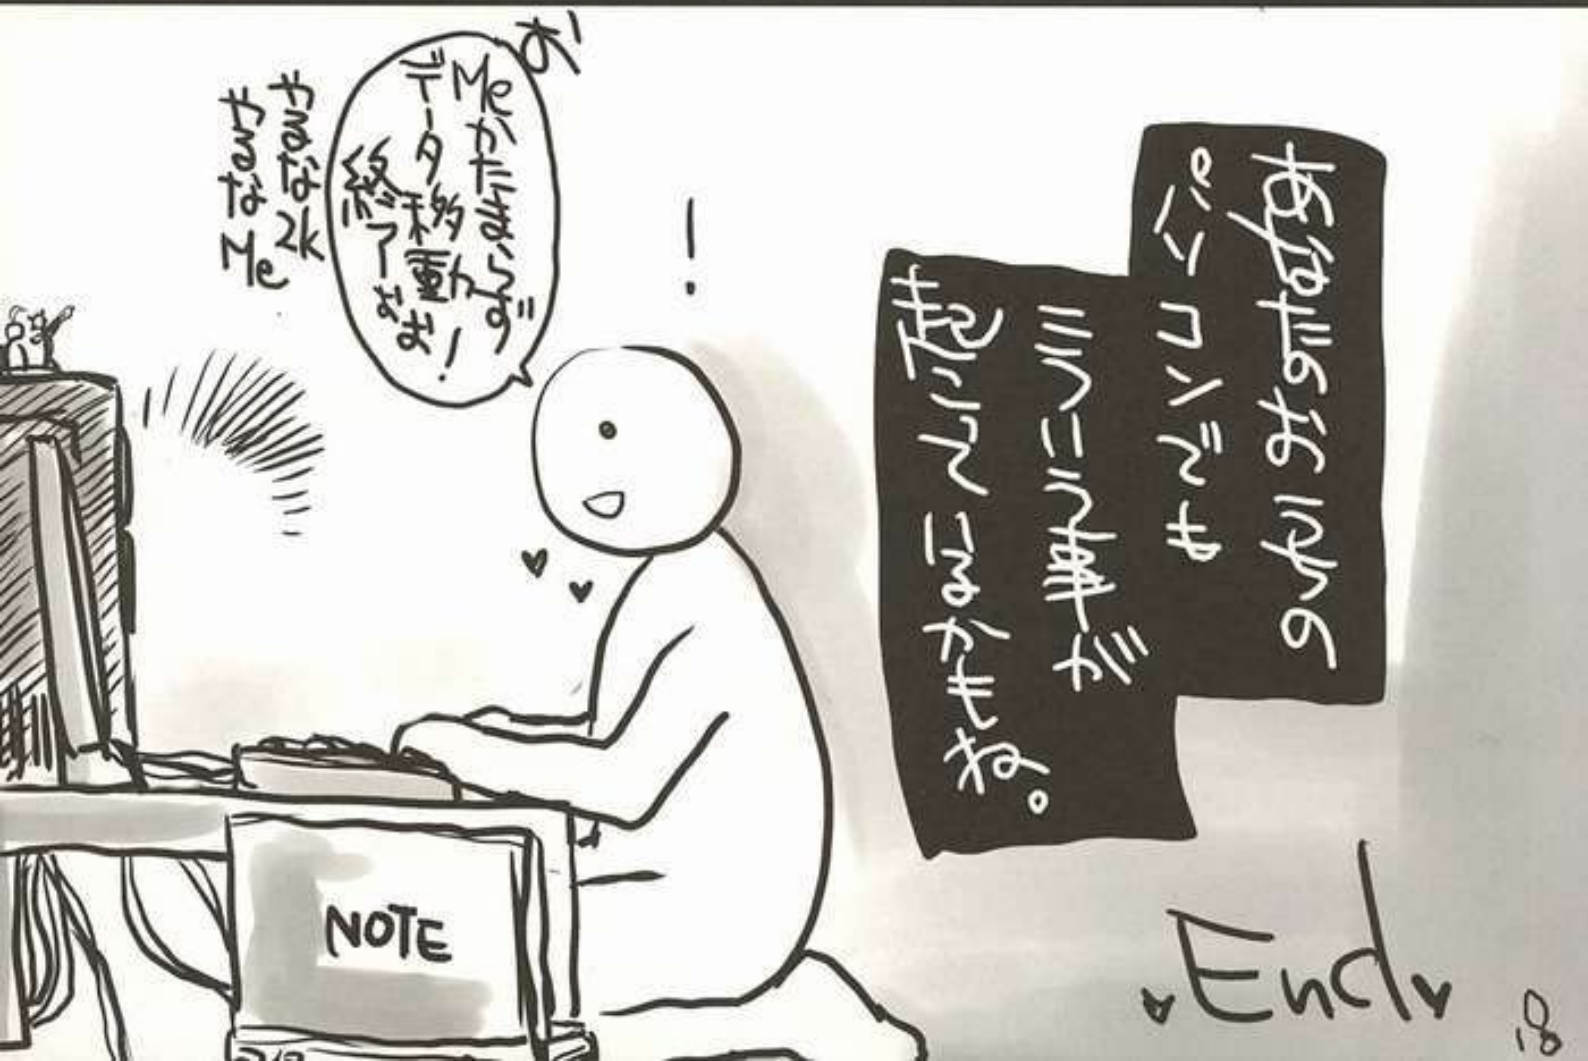 あなたのおうちの
パソコンでも
こういう事が
起こってるかもね。
!
お
Meかたまらず
データ移動!
終了よお
やるな2k
やるなMe
NOTE
End
18